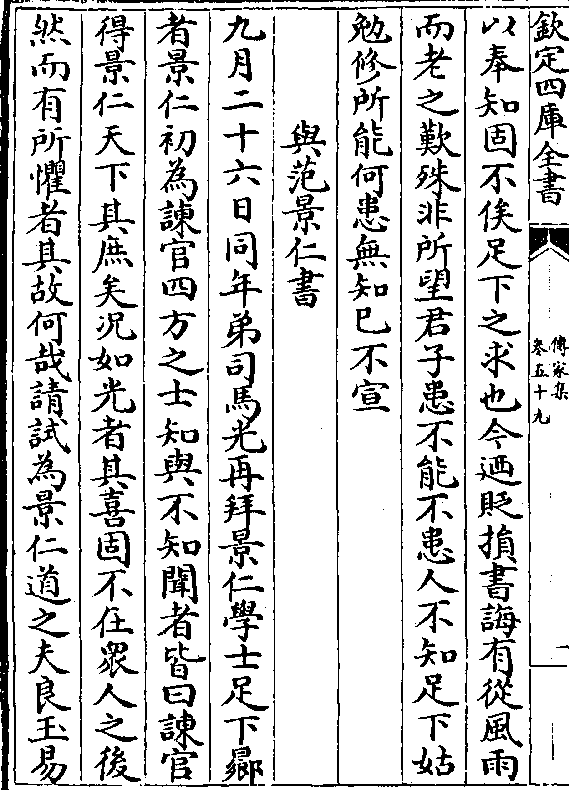 欽定四庫全書
傳家集
卷五十九
一
以奉知固不俟足下之求也今迺貶損書誨有從風雨
而老之歎殊非所望君子患不能不患人不知足下姑
勉修所能何患無知已不宣
與范景仁書
九月二十六日同年弟司馬光再拜景仁學士足下曏
者景仁初為諫官四方之士知與不知聞者皆曰諫官
得景仁天下其庶矣况如光者其喜固不在衆人之後
然而有所懼者其故何哉請試為景仁道之夫良玉易